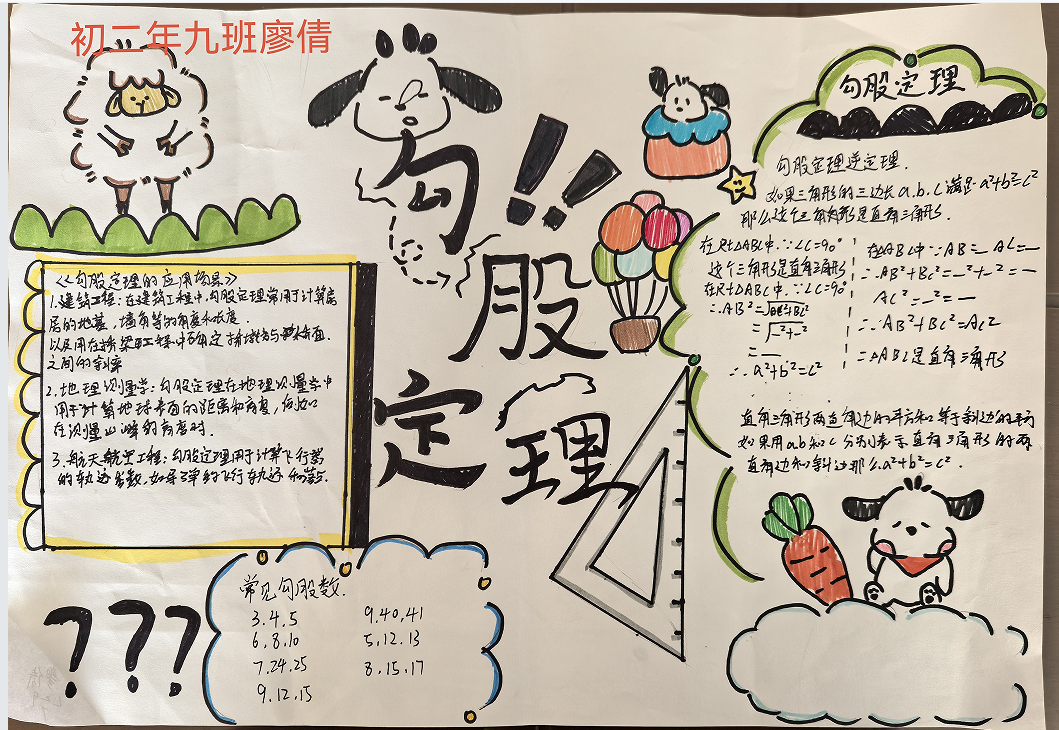 初二年九班廖倩
勾股定理
!!
勾股定理
勾股定理逆定理.
如果三角形的三边长a.b.c满足a²+b²=c²
那么这个三角形是直角三角形.
在Rt△ABC中∵∠C=90°
这个三角形是直角三角形
在Rt△ABC中.∵∠C=90°
∴AB²=
=
=
∴a²+b²=c²
在△ABC中∵AB=_ AC=_
∴AB²+BC²=_²+_²=_
AC²=_²=_
∴AB²+BC²=AC²
∴△ABC是直角三角形
直角三角形两直角边的平方和等于斜边的平方
如果用ab和c分别表示直角三角形的两
直角边和斜边那么a²+b²=c².
《勾股定理的应用场景》
1.建筑工程:在建筑工程中,勾股定理常用于计算房
屋的地基,墙角等的角度和长度.
以及用在桥梁工程中确定桥墩与桥面
之间的斜率
2.地理测量学:勾股定理在地理测量学中
用于计算地球表面的距离和高度,例如
在测量山峰的高度时.
3.航天航空工程:勾股定理用于计算飞行器
的轨迹参数,如导弹的飞行轨迹
常见勾股数.
3.4.5
6.8.10
7.24.25
9.12.15
9.40.41
5.12.13
8.15.17
???